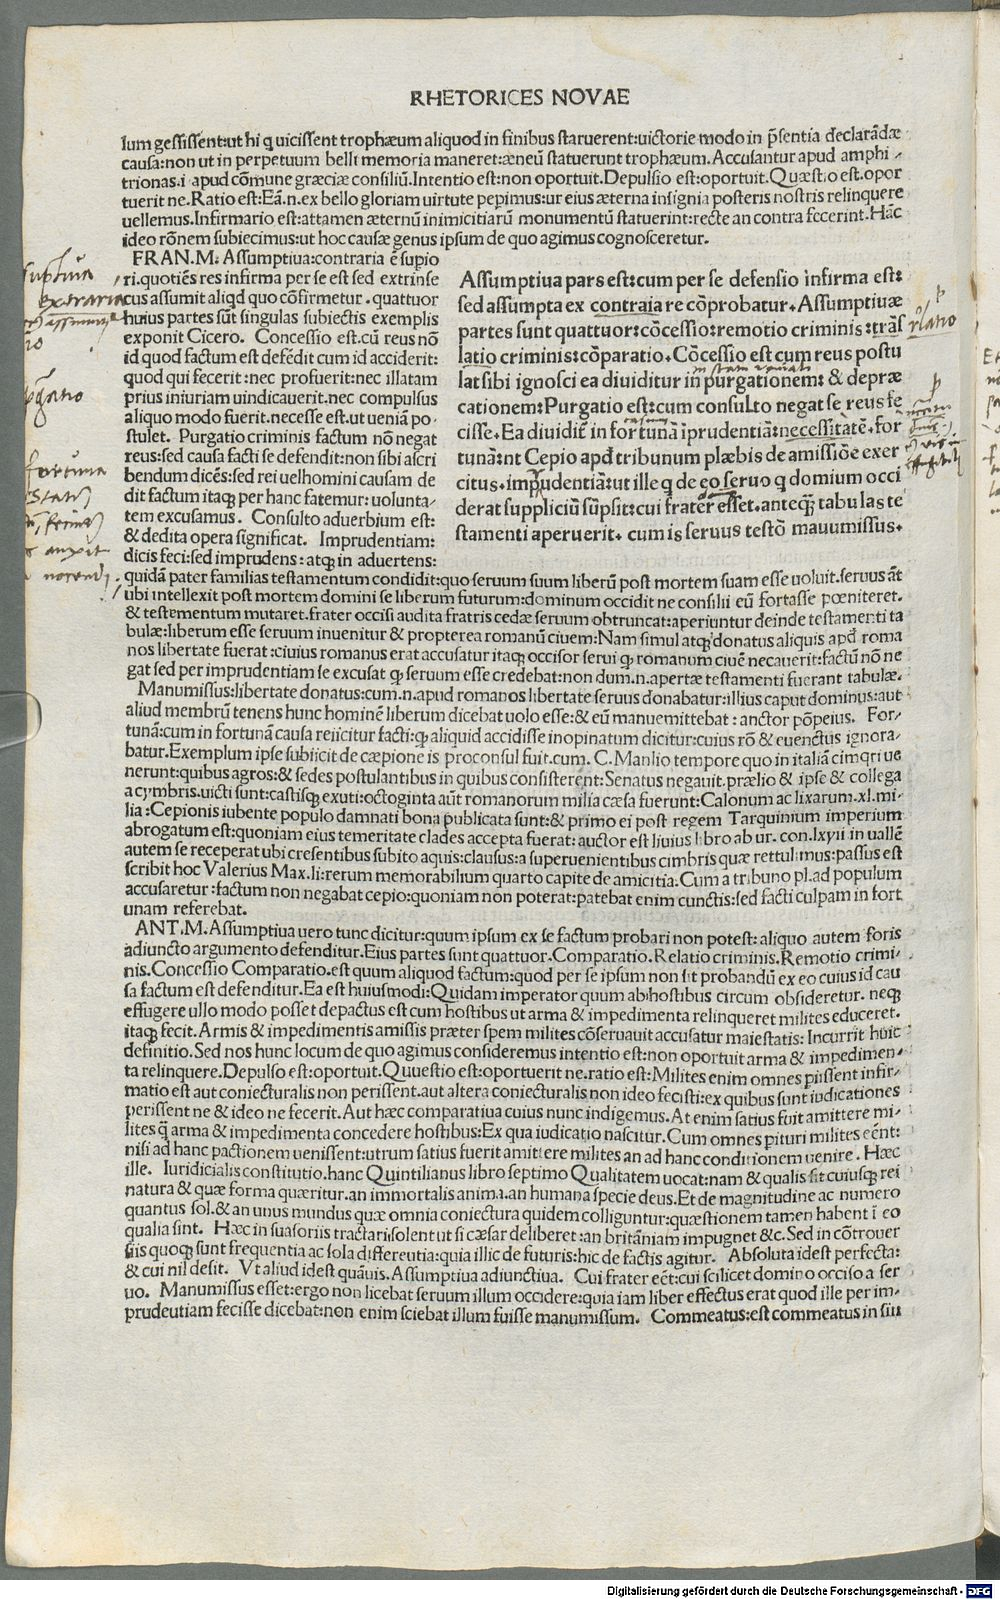 RHETORICES NOVAE
lum gessissent:ut hi q uicissent trophæum aliquod in finibus statuerent:uictorie modo in p̄sentia declarādæ
causa:non ut in perpetuum belli memoria maneret:æneū statuerunt trophæum.Accusantur apud amphi
trionas.i apud cōmune græciæ consiliū.Intentio est:non oportuit.Depulsio est:oportuit.Quæstio est.opor
tuerit ne.Ratio est:Eā.n.ex bello gloriam uirtute pepimus:ur eius æterna insignia posteris nostris relinquere
uellemus.Infirmario est:attamen æternū inimicitiarū monumentū statuerint:recte an contra fecerint.Hāc
ideo rōnem subiecimus:ut hoc causæ genus ipsum de quo agimus cognosceretur.
FRAN.M. Assumptiua:contraria ē supio
ri.quotiēs res infirma per se est sed extrinse
cus assumit aliqd quo cōfirmetur . quattuor
huius partes sūt singulas subiectis exemplis
exponit Cicero. Concessio est.cū reus nō
id quod factum est defēdit cum id acciderit:
quod qui fecerit :nec profuerit:nec illatam
prius iniuriam uindicauerit.nec compulsus
aliquo modo fuerit.necesse est.ut ueniā po-
stulet. Purgatio criminis factum nō negat
reus:sed causa facti se defendit:non sibi ascri
bendum dicēs:sed rei uelhomini causam de
dit factum itaq; per hanc fatemur: uolunta-
tem excusamus. Consulto aduerbium est:
& dedita opera significat. Imprudentiam:
dicis feci:sed imprudens : atq; in aduertens:
Assumptiua pars est:cum per se defensio infirma est:
sed assumpta ex contraia re cōprobatur.Assumptiuæ
partes sunt quattuor:cōcessio:remotio criminis :trās
latio criminis:cōparatio.Cōcessio est cum reus postu
lat sibi ignosci ea diuiditur in purgationem: & depræ
cationem:Purgatio est:cum consulto negat se reus fe
cisse.Ea diuidit̄ in fortunā iprudentiā:necessitatē.for
tunā:nt Cepio apd tribunum plæbis de amissiōe exer
citus.impudentiā:ut ille q de eo seruo q domium occi
derat suppliciū sūpsit:cui frater esset.anteq̄ tabulas te
stamenti aperuerit. cum is seruus testō mauumissus.
quidā pater familias testamentum condidit:quo seruum suum liberū post mortem suam esse uoluit.seruus āt
ubi intellexit post mortem domini se liberum futurum:dominum occidit ne consilii eū fortasse pœniteret.
& testementum mutaret.frater occisi audita fratris cedæ seruum obtruncat:aperiuntur deinde testamenti ta
bulæ:liberum esse seruum inuenitur & propterea romanū ciuem:Nam simul atq; donatus aliquis apd roma
nos libertate fuerat :ciuius romanus erat accusatur itaq; occisor serui q; romanum ciuē necauerit:factū nō ne
gat sed per imprudentiam se excusat q; seruum esse credebat:non dum.n.apertæ testamenti fuerant tabulæ.
Manumissus:libertate donatus:cum.n.apud romanos libertate seruus donabatur:illius caput dominus:aut
aliud membrū tenens hunc hominē liberum dicebat uolo esse:& eū manuemittebat : anctor pōpeius. For-
tunā:cum in fortunā causa reiicitur facti:q; aliquid accidisse inopinatum dicitur:cuius rō & euenctus ignora-
batur.Exemplum ipse subiicit de cæpione is proconsul fuit.cum. C.Manlio tempore quo in italiā cimqri ue
nerunt:quibus agros:& sedes postulantibus in quibus consisterent:Senatus negauit.prælio & ipse & collega
a cymbris.uicti sunt:castisq; exuti:octoginta aūt romanorum milia cæsa fuerunt:Calonum ac lixarum.xl.mi-
lia :Cepionis iubente populo damnati bona publicata sunt:& primo ei post regem Tarquinium imperium
abrogatum est:quoniam eius temeritate clades accepta fuerat: auctor est liuius libro ab ur. con.lxyii in uallē
autem se receperat ubi cresentibus subito aquis:clausus:a superuenientibus cimbris quæ rettulimus:passus est
scribit hoc Valerius Max.li:rerum memorabilium quarto capite de amicitia.Cum a tribuno pl.ad populum
accusaretur :factum non negabat cepio:quoniam non poterat:patebat enim cunctis:sed facti culpam in fort
unam referebat.
ANT.M.Assumptiua uero tunc dicitur:quum ipsum ex se factum probari non potest: aliquo autem foris
adiuncto argumento defenditur.Eius partes sunt quattuor.Comparatio.Relatio criminis.Remotio crimi-
nis.Concessio Comparatio.est quum aliquod factum:quod per se ipsum non sit probandū ex eo cuius id cau
sa factum est defenditur.Ea est huiusmodi:Quidam imperator quum abihostibus circum obsideretur. neq;
effugere ullo modo posset depactus est cum hostibus ut arma & impedimenta relinqueret milites educeret.
itaq; fecit.Armis & impedimentis amissis præter spem milites cōseruauit accusatur maiestatis: Incurrit huic
definitio.Sed nos hunc locum de quo agimus consideremus intentio est:non oportuit arma & impedimen-
ta relinquere.Depulso est:oportuit.Quuestio est:oportuerit ne.ratio est:Milites enim omnes piissent infir-
matio est aut coniecturalis non perissent.aut altera coniecturalis non ideo fecisti:ex quibus sunt iudicationes
perissent ne & ideo ne fecerit.Aut hæc comparatiua cuius nunc indigemus.At enim satius fuit amittere mi-
lites q̄ arma & impedimenta concedere hostibus:Ex qua iudicatio nascitur.Cum omnes pituri milites eēnt:
nisi ad hanc pactionem uenissent:utrum satius fuerit amittere milites an ad hanc conditionem uenire . Hæc
ille. Iuridicialis constitutio.hanc Quintilianus libro septimo Qualitatem uocat:nam & qualis sit cuiusq; rei
natura & quæ forma quæritur.an immortalis anima.an humana specie deus.Et de magnitudine ac numero
quantus sol.& an unus mundus quæ omnia coniectura quidem colliguntur:quæstionem tamen habent ī eo
qualia sint. Hæc in suasoriis tractari solent ut si cæsar deliberet :an britāniam impugnet &c.Sed in cōtrouer
siis quoq; sunt frequentia ac sola differeutia:quia illic de futuris:hic de factis agitur. Absoluta idest perfecta:
& cui nil desit. Vt aliud idest quāuis.Assumptiua adiunctiua. Cui frater eēt:cui scilicet domino occiso a ser
uo. Manumissus esset:ergo non licebat seruum illum occidere:quia iam liber effectus erat quod ille per im-
prudeutiam fecisse dicebat:non enim sciebat illum fuisse manumissum. Commeatus:est commeatus in siii
Digitalisierung gefördert durch die Deutsche Forschungsgemeinschaft - DFG